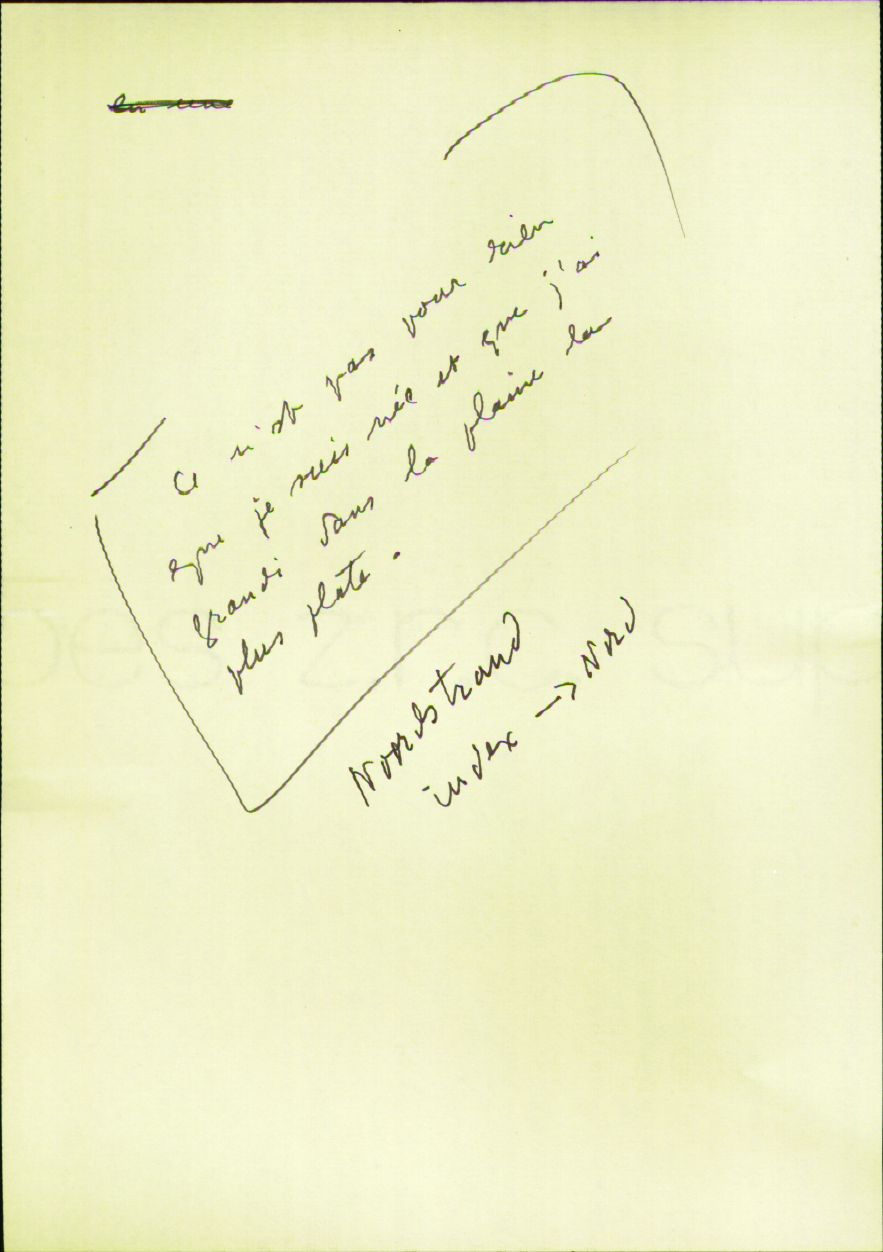 Ce n'est pas pour rien
que je suis née et que j'ai
grandi dans la plaine la
plus plate.
Nordstrand
index → Nord